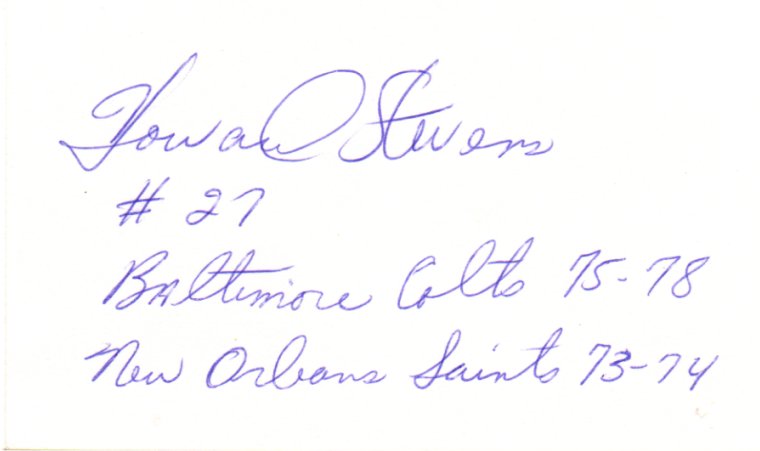 Howard Stevens
# 27
Baltimore Colts 75-78
New Orleans Saints 73-74